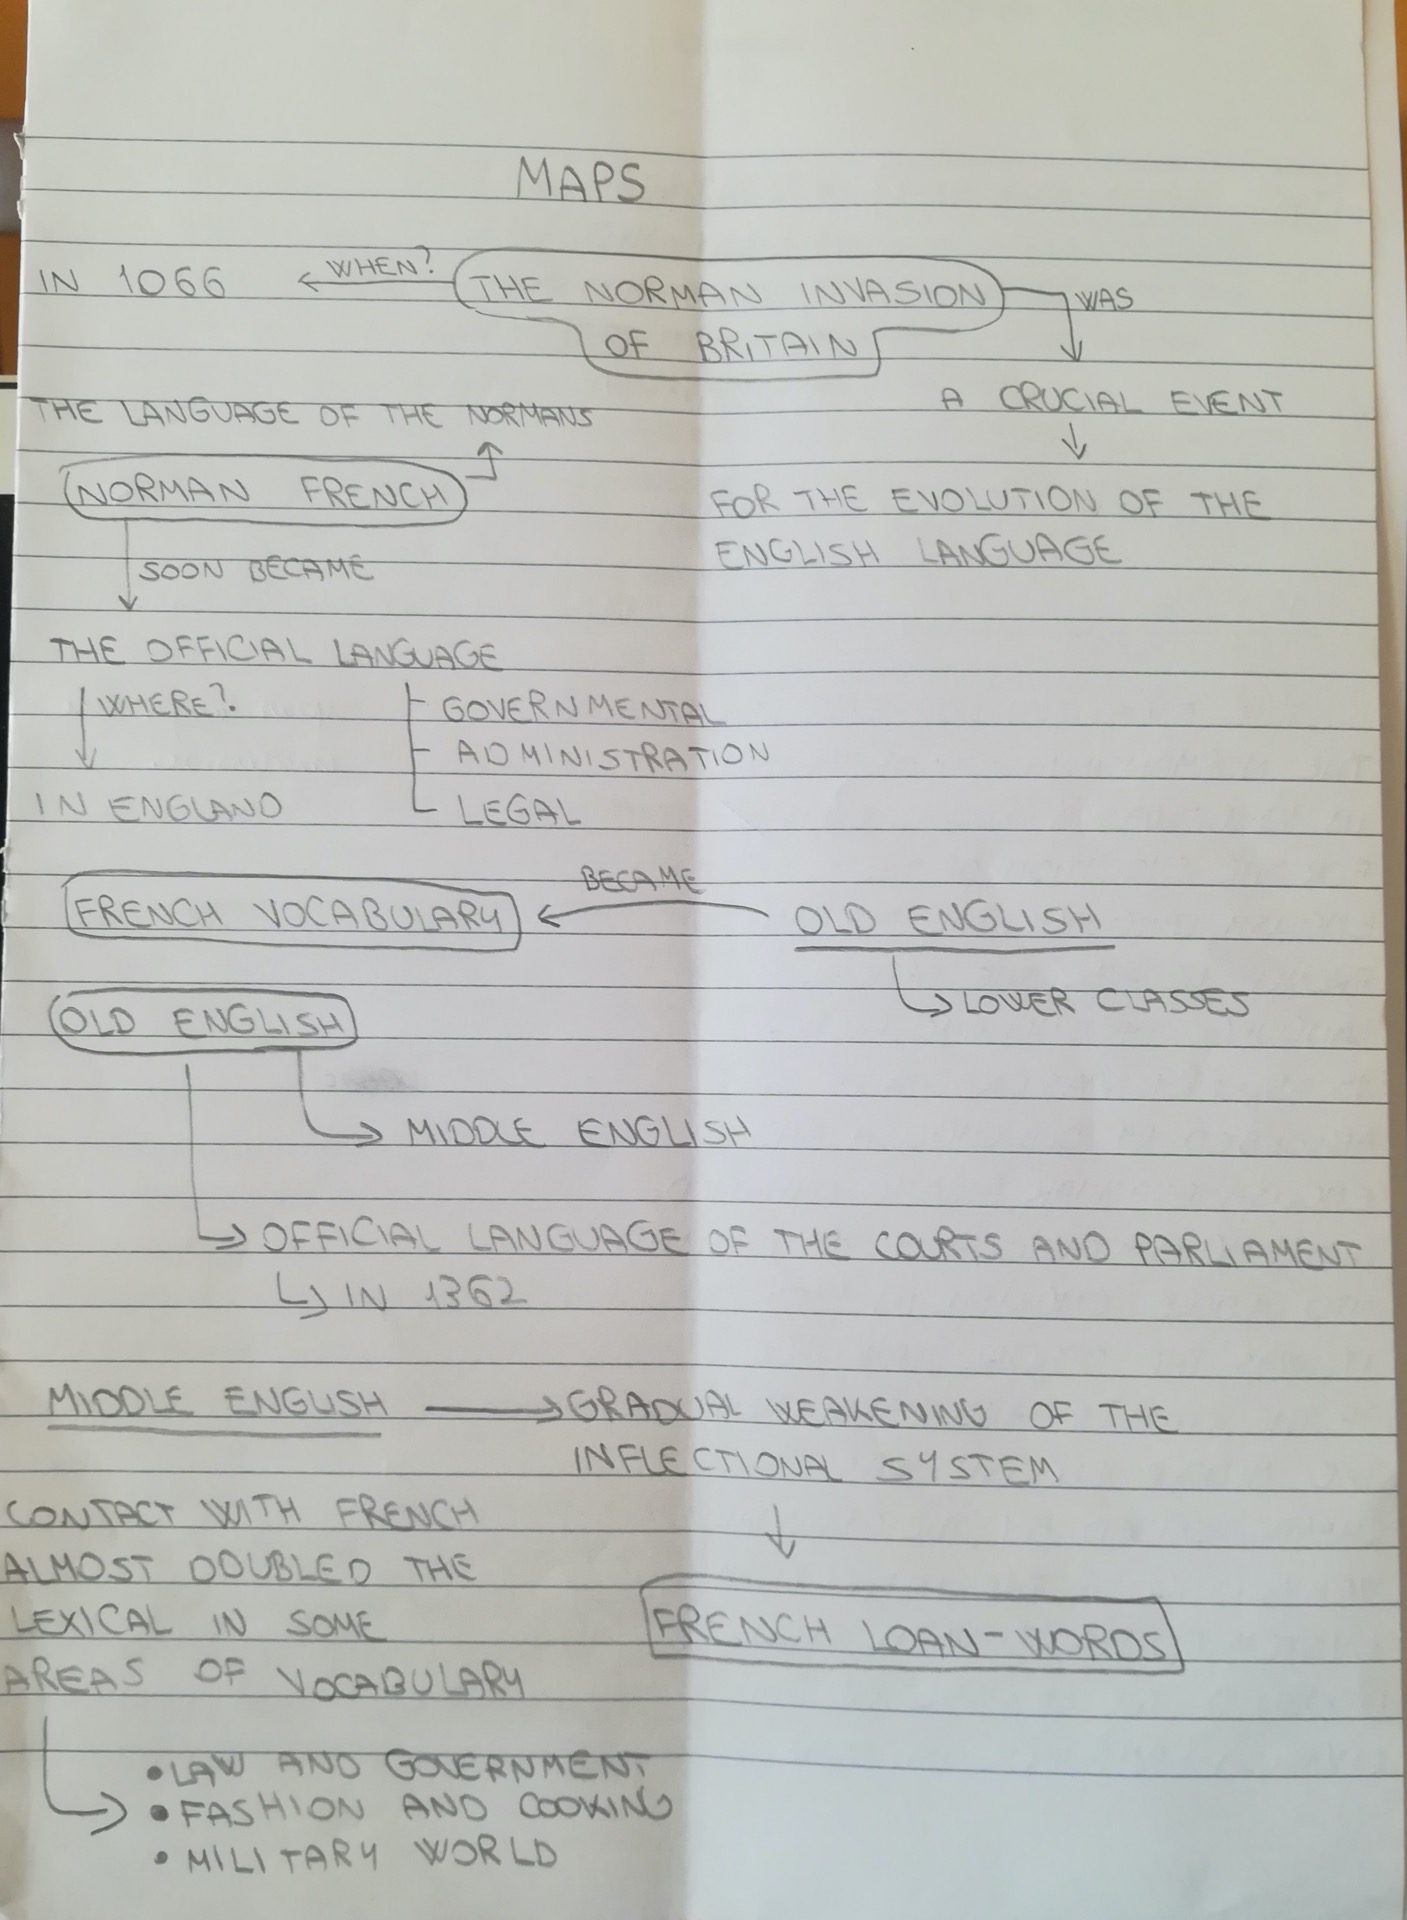 MAPS
IN 1066
WHEN?
THE NORMAN INVASION
OF BRITAIN
WAS
A CRUCIAL EVENT
FOR THE EVOLUTION OF THE
ENGLISH LANGUAGE
THE LANGUAGE OF THE NORMANS
NORMAN FRENCH
SOON BECAME
THE OFFICIAL LANGUAGE
WHERE?
IN ENGLAND
GOVERNMENTAL
ADMINISTRATION
LEGAL
FRENCH VOCABULARY
BECAME
OLD ENGLISH
LOWER CLASSES
OLD ENGLISH
MIDDLE ENGLISH
OFFICIAL LANGUAGE OF THE COURTS AND PARLIAMENT
IN 1362
MIDDLE ENGLISH
GRADUAL WEAKENING OF THE
INFLECTIONAL SYSTEM
FRENCH LOAN-WORDS
CONTACT WITH FRENCH
ALMOST DOUBLED THE
LEXICAL IN SOME
AREAS OF VOCABULARY
• LAW AND GOVERNMENT
• FASHION AND COOKING
• MILITARY WORLD